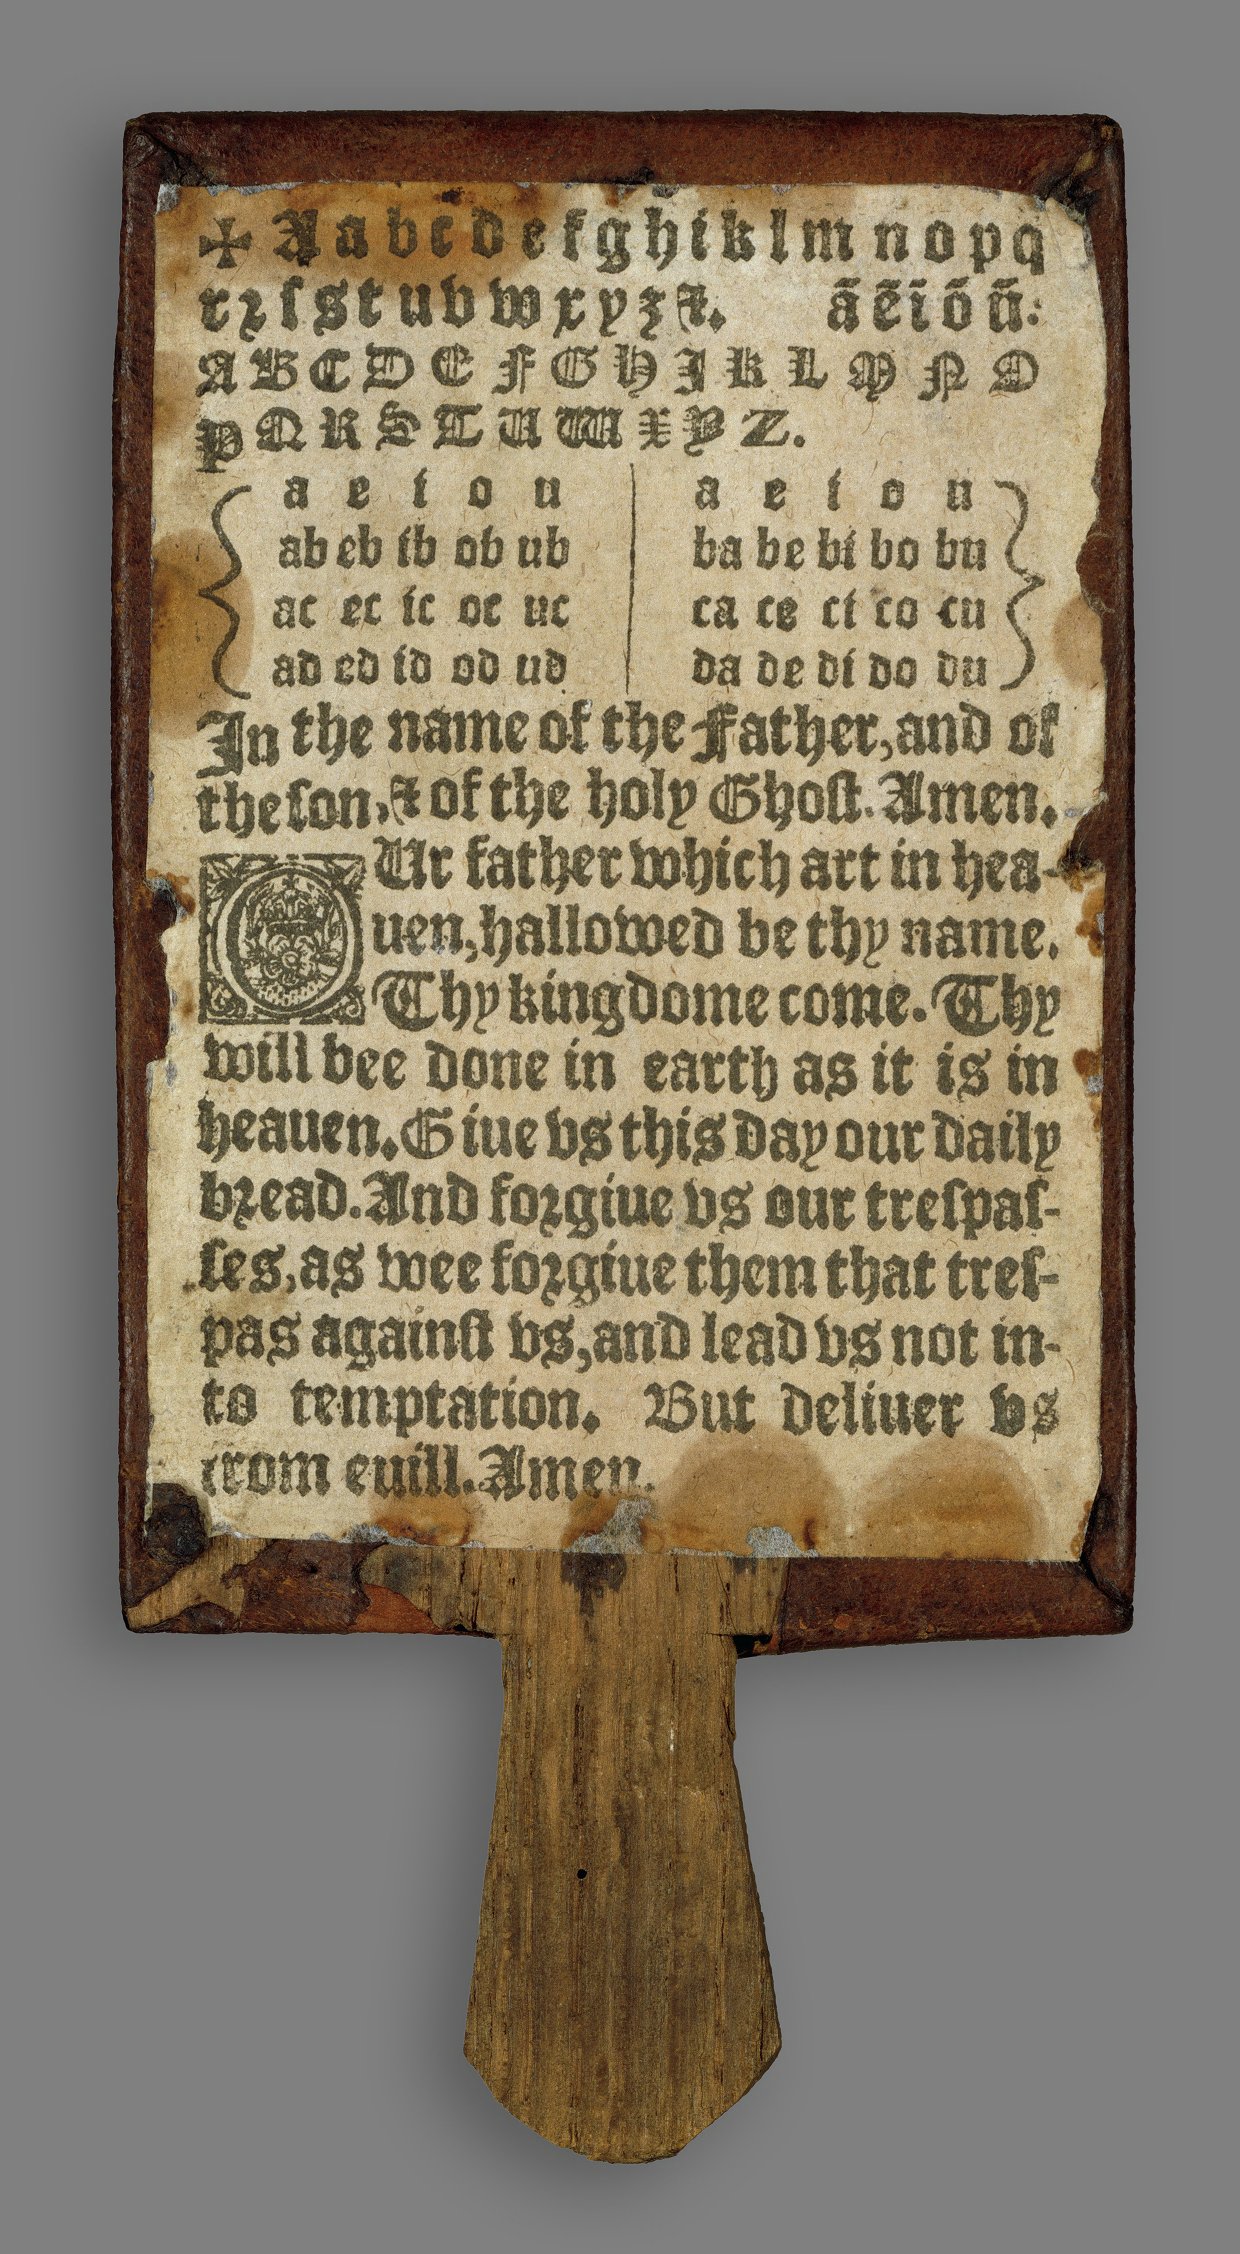 ✠ A a b c d e f g h i k l m n o p q
r ꝛ ſ s t u v w x y z &. ã ẽ ĩ õ ũ:
A B C D E F G H I K L M N O
P Q R S T U W X Y Z.
a e i o u a e i o u
ab eb ib ob ub ba be bi bo bu
ac ec ic oc uc ca ce ci co cu
ad ed id od ud da de di do du
In the name of the Father, and of
the ſon, & of the holy Ghoſt. Amen.
OUr father which art in hea-
uen, hallowed be thy name.
Thy kingdome come. Thy
will bee done in earth as it is in
heauen. Giue vs this day our daily
bꝛead. And foꝛgiue vs our treſpaſ-
ſes, as wee foꝛgiue them that treſ-
pas againſt vs, and lead vs not in-
to temptation. But deliuer vs
from euill. Amen.